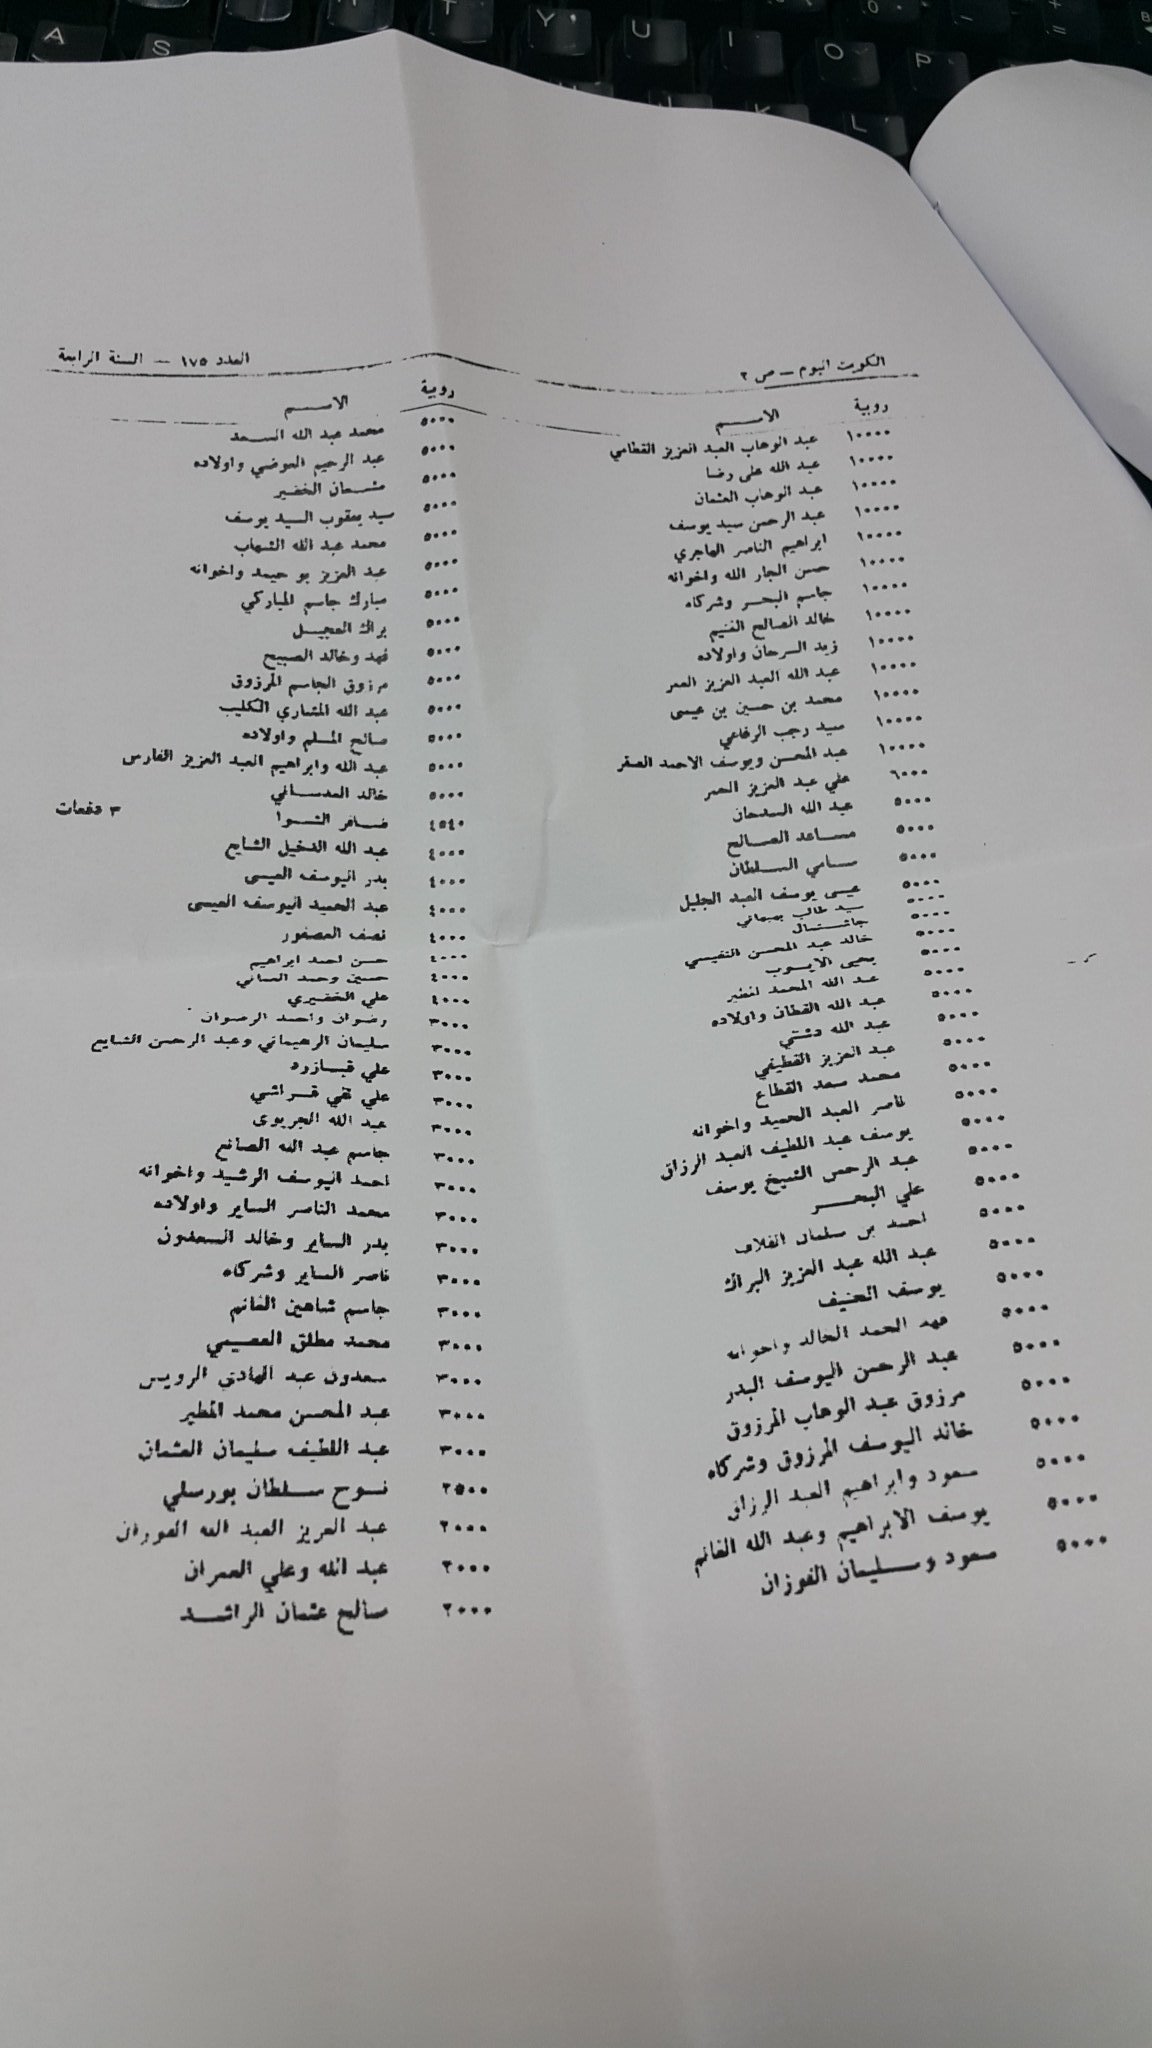 الكويت اليوم — ص ٢
العدد ١٧٥ — السنة الرابعة
روبية الاسم
١٠٠٠٠ عبد الوهاب العبد العزيز القطامي
١٠٠٠٠ عبد الله علي رضا
١٠٠٠٠ عبد الوهاب العثمان
١٠٠٠٠ عبد الرحمن سيد يوسف
١٠٠٠٠ ابراهيم الناصر الهاجري
١٠٠٠٠ حسن الجار الله واخوانه
١٠٠٠٠ جاسم البحر وشركاه
١٠٠٠٠ خالد الصالح الغنيم
١٠٠٠٠ زيد السرحان واولاده
١٠٠٠٠ عبد الله العبد العزيز العمر
١٠٠٠٠ محمد بن حسين بن عيسى
١٠٠٠٠ سيد رجب الرفاعي
١٠٠٠٠ عبد المحسن ويوسف الاحمد الصقر
٦٠٠٠ علي عبد العزيز العمر
٥٠٠٠ عبد الله السدحان
٥٠٠٠ مساعد الصالح
٥٠٠٠ سامي السلطان
٥٠٠٠ عيسى يوسف العبد الجليل
٥٠٠٠ سيد طالب بهبهاني
٥٠٠٠ جاشنمال
٥٠٠٠ خالد عبد المحسن النفيسي
٥٠٠٠ يحيى الايوب
٥٠٠٠ عبد الله المحمد
٥٠٠٠ عبد الله القطان واولاده
٥٠٠٠ عبد الله دشتي
٥٠٠٠ عبد العزيز القطيفي
٥٠٠٠ محمد سعد القطاع
٥٠٠٠ ناصر العبد الحميد واخوانه
٥٠٠٠ يوسف عبد اللطيف العبد الرزاق
٥٠٠٠ عبد الرحمن الشيخ يوسف
٥٠٠٠ علي البحر
٥٠٠٠ احمد بن سلمان الفلاف
٥٠٠٠ عبد الله عبد العزيز البراك
٥٠٠٠ يوسف الحنيف
٥٠٠٠ فهد الحمد الخالد واخوانه
٥٠٠٠ عبد الرحمن اليوسف البدر
٥٠٠٠ مرزوق عبد الوهاب المرزوق
٥٠٠٠ خالد اليوسف المرزوق وشركاه
٥٠٠٠ سعود وابراهيم العبد الرزاق
٥٠٠٠ يوسف الابراهيم وعبد الله الغانم
٥٠٠٠ سعود وسليمان الفوزان
روبية الاسم
٥٠٠٠ محمد عبد الله السعد
٥٠٠٠ عبد الرحيم العوضي واولاده
٥٠٠٠ مشعان الخضير
٥٠٠٠ سيد يعقوب السيد يوسف
٥٠٠٠ محمد عبد الله الشهاب
٥٠٠٠ عبد العزيز بو حيمد واخوانه
٥٠٠٠ مبارك جاسم المباركي
٥٠٠٠ براك العجيل
٥٠٠٠ فهد وخالد الصبيح
٥٠٠٠ مرزوق الجاسم المرزوق
٥٠٠٠ عبد الله المشاري الكليب
٥٠٠٠ صالح المسلم واولاده
٥٠٠٠ عبد الله وابراهيم العبد العزيز الفارس
٥٠٠٠ خالد العدساني
٤٥٤٠ ضافر الشوا ٣ دفعات
٤٠٠٠ عبد الله الدخيل الشايع
٤٠٠٠ بدر اليوسف العيسى
٤٠٠٠ عبد الحميد اليوسف العيسى
٤٠٠٠ نصف العصفور
٤٠٠٠ حسن احمد ابراهيم
٤٠٠٠ حسين وحمد
٤٠٠٠ علي الخضيري
٣٠٠٠ رضوان واحمد الرضوان
٣٠٠٠ سليمان الرهيماني وعبد الرحمن الشايع
٣٠٠٠ علي قبازرد
٣٠٠٠ علي تقي قراشي
٣٠٠٠ عبد الله الجريوى
٣٠٠٠ جاسم عبد الله الصانع
٣٠٠٠ احمد اليوسف الرشيد واخوانه
٣٠٠٠ محمد الناصر الساير واولاده
٣٠٠٠ بدر الساير وخالد السعدون
٣٠٠٠ ناصر الساير وشركاه
٣٠٠٠ جاسم شاهين الغانم
٣٠٠٠ محمد مطلق العصيمي
٣٠٠٠ سعدون عبد الهادي الرويس
٣٠٠٠ عبد المحسن محمد المطير
٣٠٠٠ عبد اللطيف سليمان العثمان
٢٥٠٠ نوح سلطان بورسلي
٢٠٠٠ عبد العزيز العبد الله الفوزان
٢٠٠٠ عبد الله وعلي العمران
٢٠٠٠ صالح عثمان الراشد
A S T Y U I O P K L